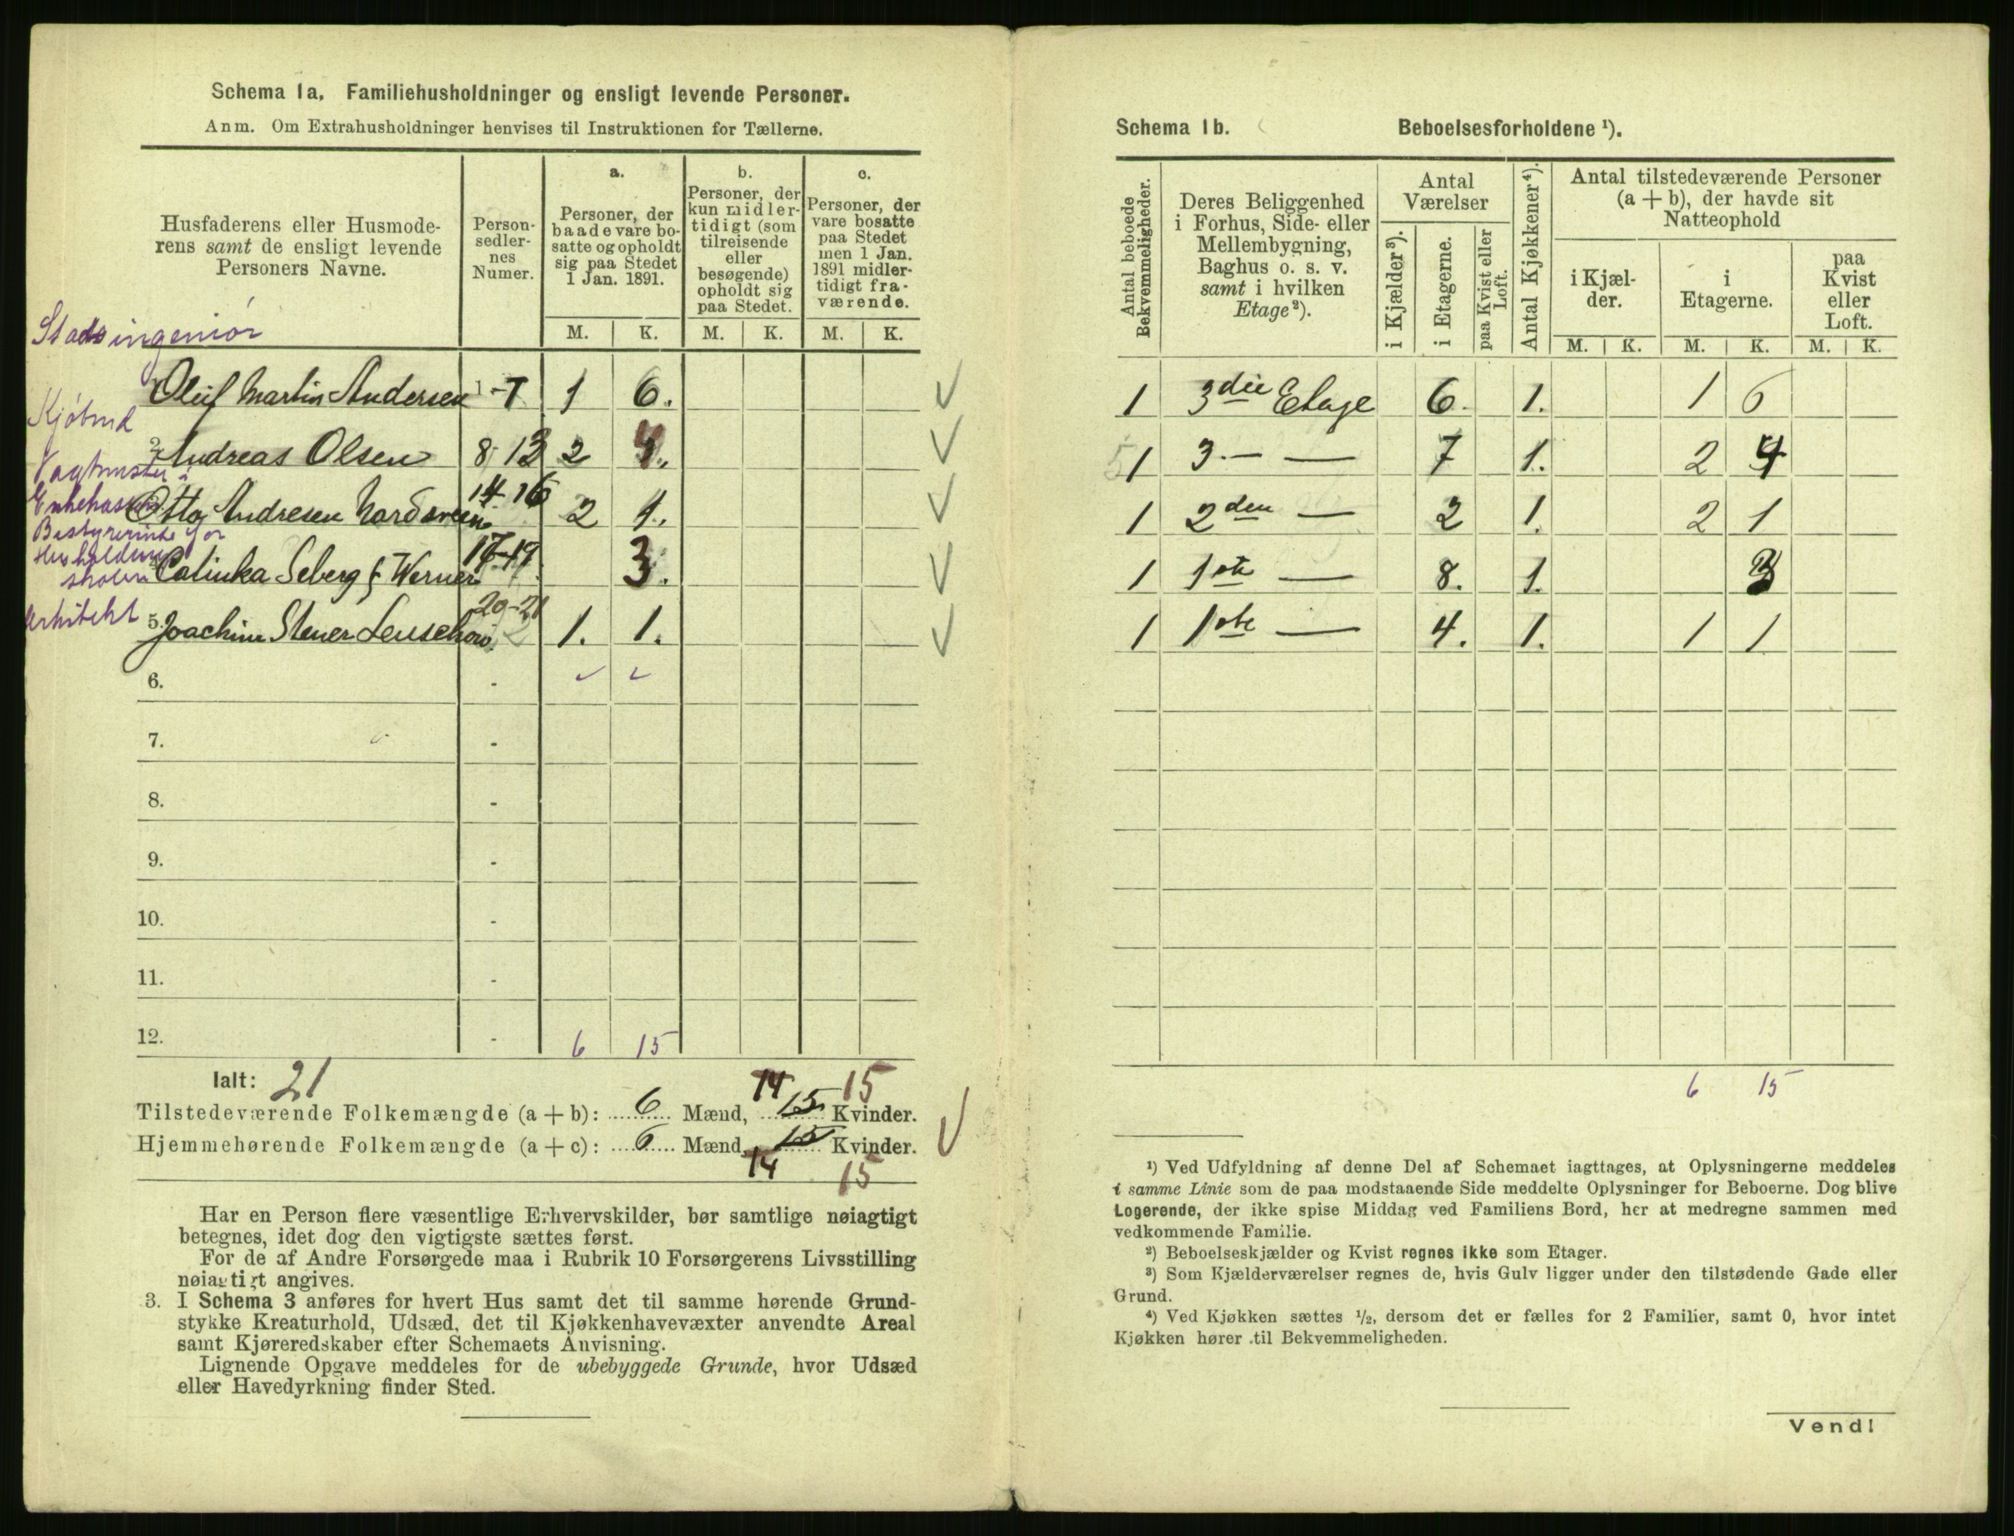 Schema 1a. Familiehusholdninger og ensligt levende Personer.
Anm. Om Extrahusholdninger henvises til Instruktionen for Tællerne.
Husfaderens eller Husmode-
rens samt de ensligt levende
Personers Navne.
Person-
sedler-
nes
Numer.
a.
Personer, der
baade vare bo-
satte og opholdt
sig paa Stedet
1 Jan. 1891.
b.
Personer, der
kun midler-
tidigt (som
tilreisende
eller
besøgende)
opholdt sig
paa Stedet.
c.
Personer, der
vare bosatte
paa Stedet
men 1 Jan.
1891 midler-
tidigt fra-
værende.
M. K. M. K. M. K.
Stadsingeniør
Oluf Martin Andersen 1-7 1 6.
Kjøbmd
2. Andreas Olsen 8 13 2 4.
Otto Andresen 14-16 2 1.
Bestyrerinde for
Husholdnings
skolen Calinka Seberg f. Werner 17-19 3.
Arkitekt
5. Joachim 20-21 1. 1.
6. -
7. -
8. -
9. -
10. -
11. -
12. - 6 15
Ialt: 21 14 15
Tilstedeværende Folkemængde (a + b): 6 Mænd, 15 Kvinder.
Hjemmehørende Folkemængde (a + c): 6 Mænd, 15 Kvinder.
14 15
Har en Person flere væsentlige Erhvervskilder, bør samtlige nøiagtigt
betegnes, idet dog den vigtigste sættes først.
For de af Andre Forsørgede maa i Rubrik 10 Forsørgerens Livsstilling
nøiagtigt angives.
3. I Schema 3 anføres for hvert Hus samt det til samme hørende Grund-
stykke Kreaturhold, Udsæd, det til Kjøkkenhavevæxter anvendte Areal
samt Kjøreredskaber efter Schemaets Anvisning.
Lignende Opgave meddeles for de ubebyggede Grunde, hvor Udsæd
eller Havedyrkning finder Sted.
Schema 1b. Beboelsesforholdene ¹).
Antal beboede
Bekvemmeligheder.
Deres Beliggenhed
i Forhus, Side- eller
Mellembygning,
Baghus o. s. v.
samt i hvilken
Etage²).
Antal
Værelser
i Kjælder³).
i Etagerne.
paa Kvist eller
Loft.
Antal Kjøkkener⁴).
Antal tilstedeværende Personer
(a + b), der havde sit
Natteophold
i Kjæl-
der.
i
Etagerne.
paa
Kvist
eller
Loft.
M. K. M. K. M. K.
1 3die Etage 6. 1. 1 6
1 3. — — 7 1. 2 4
1 2den — 2 1. 2 1
1 1ste — 8. 1. 3
1 1ste — 4. 1. 1 1
6 15
¹) Ved Udfyldning af denne Del af Schemaet iagttages, at Oplysningerne meddeles
i samme Linie som de paa modstaaende Side meddelte Oplysninger for Beboerne. Dog blive
Logerende, der ikke spise Middag ved Familiens Bord, her at medregne sammen med
vedkommende Familie.
²) Beboelseskjælder og Kvist regnes ikke som Etager.
³) Som Kjælderværelser regnes de, hvis Gulv ligger under den tilstødende Gade eller
Grund.
⁴) Ved Kjøkken sættes ½, dersom det er fælles for 2 Familier, samt 0, hvor intet
Kjøkken hører til Bekvemmeligheden.
Vend!